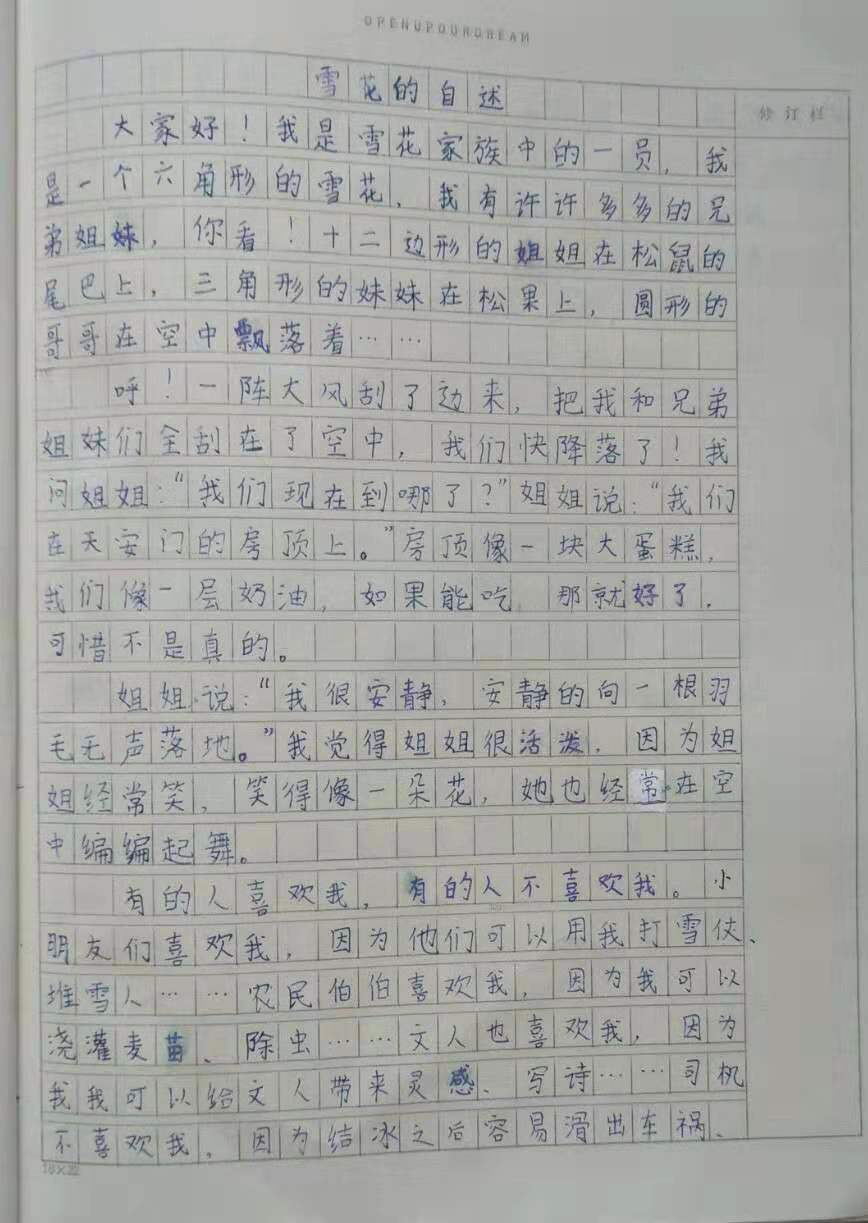 OPENUPOURDREAM
雪花的自述
修订栏
大家好！我是雪花家族中的一员，我
是一个六角形的雪花，我有许许多多的兄
弟姐妹，你看！十二边形的姐姐在松鼠的
尾巴上，三角形的妹妹在松果上，圆形的
哥哥在空中飘落着……
呼！一阵大风刮了边来，把我和兄弟
姐妹们全刮在了空中，我们快降落了！我
问姐姐：“我们现在到哪了？”姐姐说：“我们
在天安门的房顶上。”房顶像一块大蛋糕，
我们像一层奶油，如果能吃，那就好了，
可惜不是真的。
姐姐说：“我很安静，安静的向一根羽
毛无声落地。”我觉得姐姐很活泼，因为姐
姐经常笑，笑得像一朵花，她也经常在空
中编编起舞。
有的人喜欢我，有的人不喜欢我。小
朋友们喜欢我，因为他们可以用我打雪仗、
堆雪人……农民伯伯喜欢我，因为我可以
浇灌麦苗、除虫……文人也喜欢我，因为
我我可以给文人带来灵感、写诗……司机
不喜欢我，因为结冰之后容易滑出车祸、
18×22